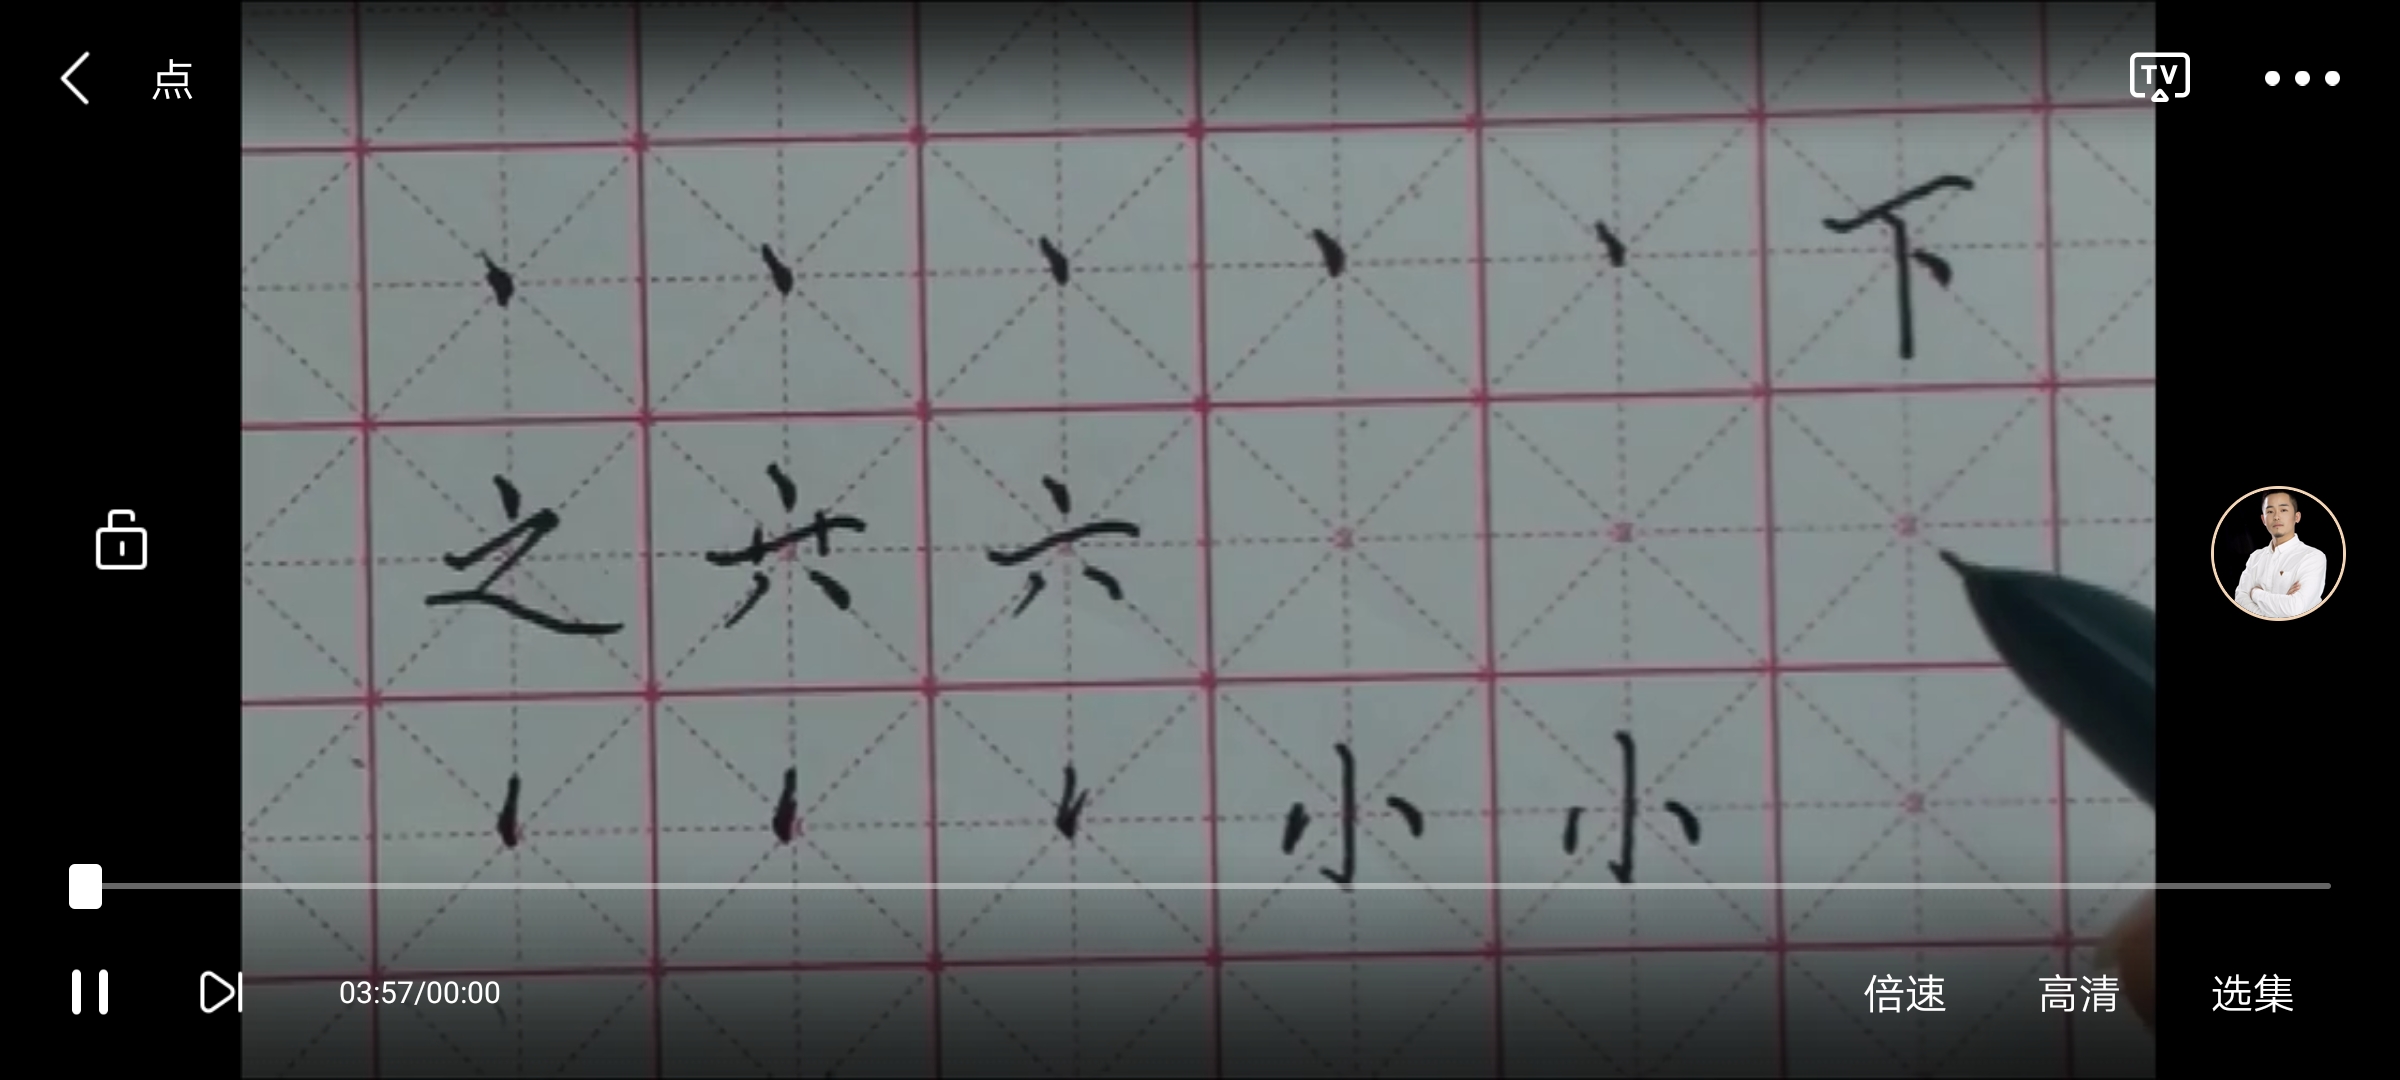 点
TV
丶 丶 丶 丶 丶 下
之 共 六
小 小
03:57/00:00
倍速 高清 选集